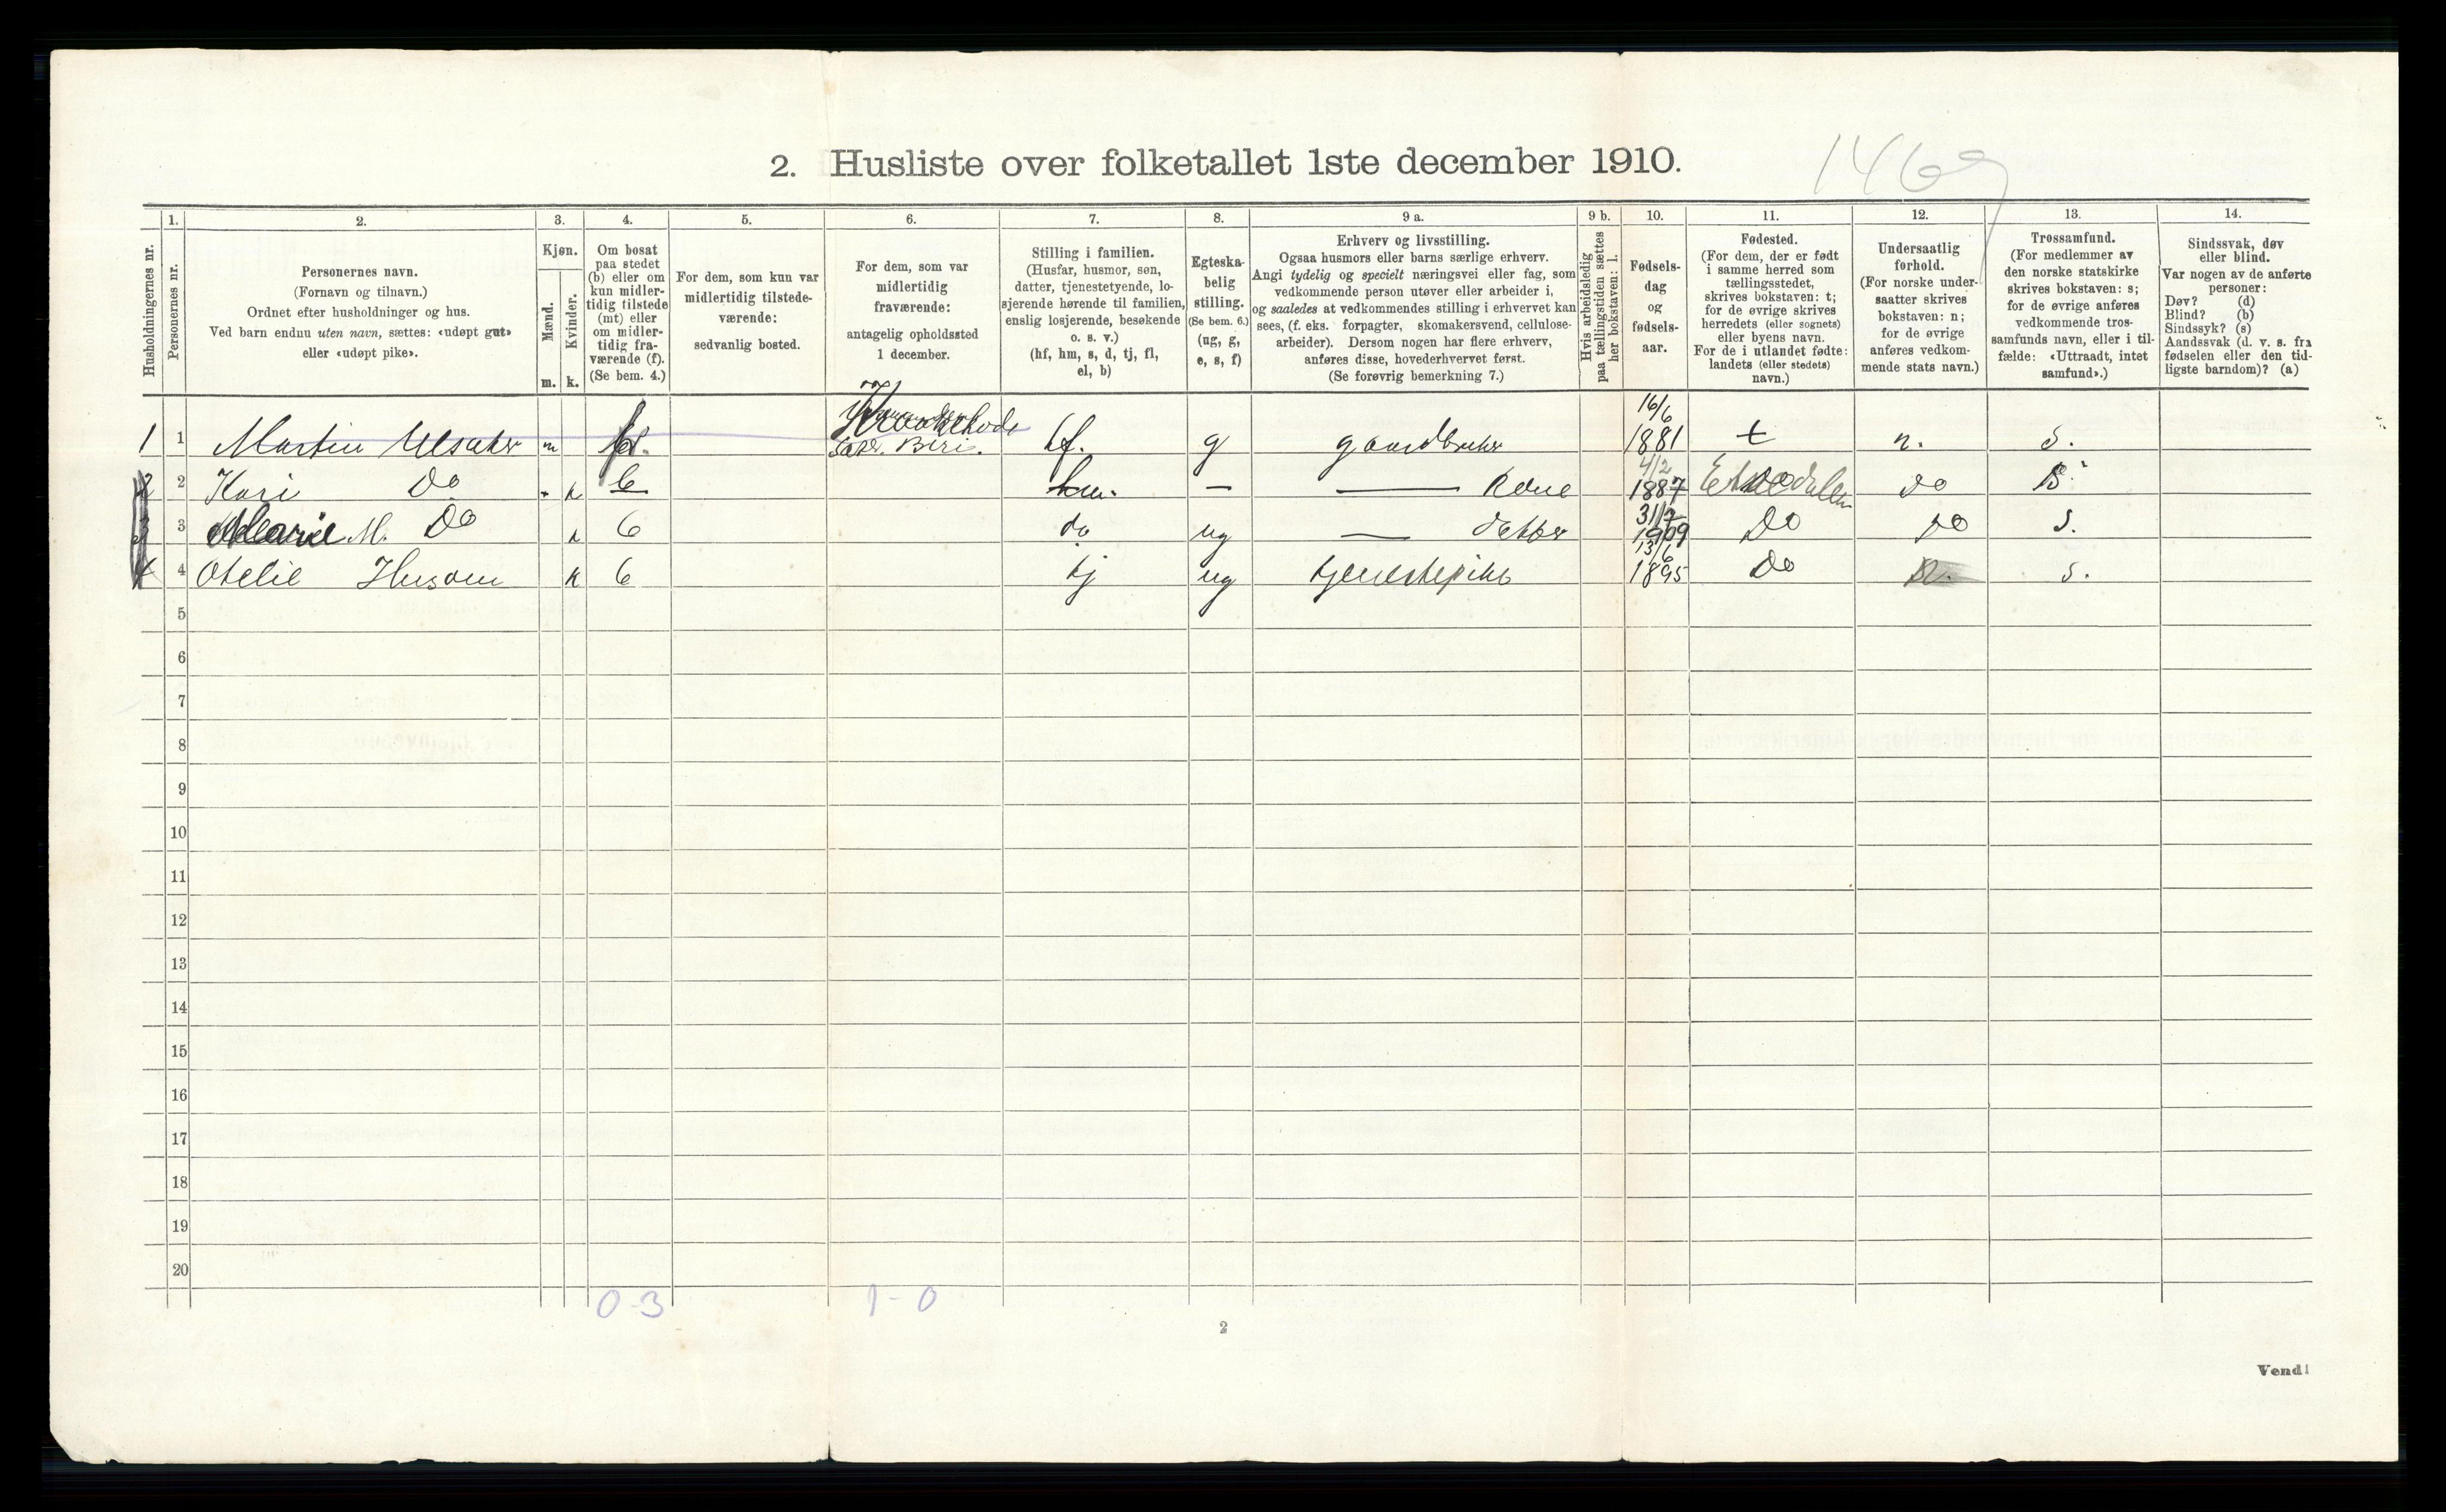 1469
2. Husliste over folketallet 1ste december 1910.
1. 2. 3. 4. 5. 6. 7. 8. 9 a. 9 b. 10. 11. 12. 13. 14.
Husholdningernes nr.
Personernes nr.
Personernes navn.
(Fornavn og tilnavn.)
Ordnet efter husholdninger og hus.
Ved barn endnu uten navn, sættes: «udøpt gut»
eller «udøpt pike».
Kjøn.
Mænd.
Kvinder.
m. k.
Om bosat
paa stedet
(b) eller om
kun midler-
tidig tilstede
(mt) eller
om midler-
tidig fra-
værende (f).
(Se bem. 4.)
For dem, som kun var
midlertidig tilstede-
værende:
sedvanlig bosted.
For dem, som var
midlertidig
fraværende:
antagelig opholdssted
1 december.
Stilling i familien.
(Husfar, husmor, søn,
datter, tjenestetyende, lo-
sjerende hørende til familien,
enslig losjerende, besøkende
o. s. v.)
(hf, hm, s, d, tj, fl,
el, b)
Egteska-
belig
stilling.
(Se bem. 6.)
(ug, g,
e, s, f)
Erhverv og livsstilling.
Ogsaa husmors eller barns særlige erhverv.
Angi tydelig og specielt næringsvei eller fag, som
vedkommende person utøver eller arbeider i,
og saaledes at vedkommendes stilling i erhvervet kan
sees, (f. eks. forpagter, skomakersvend, cellulose-
arbeider). Dersom nogen har flere erhverv,
anføres disse, hovederhvervet først.
(Se forøvrig bemerkning 7.)
Hvis arbeidsledig
paa tællingstiden sættes
her bokstaven: l.
Fødsels-
dag
og
fødsels-
aar.
Fødested.
(For dem, der er født
i samme herred som
tællingsstedet,
skrives bokstaven: t;
for de øvrige skrives
herredets (eller sognets)
eller byens navn.
For de i utlandet fødte:
landets (eller stedets)
navn.)
Undersaatlig
forhold.
(For norske under-
saatter skrives
bokstaven: n;
for de øvrige
anføres vedkom-
mende stats navn.)
Trossamfund.
(For medlemmer av
den norske statskirke
skrives bokstaven: s;
for de øvrige anføres
vedkommende tros-
samfunds navn, eller i til-
fælde: «Uttraadt, intet
samfund».)
Sindssvak, døv
eller blind.
Var nogen av de anførte
personer:
Døv? (d)
Blind? (b)
Sindssyk? (s)
Aandssvak (d. v. s. fra
fødselen eller den tid-
ligste barndom)? (a)
1 1 Martin Ulsaker m Biri. hf. g gaardbruker 16/6 1881 t n. s.
2 2 Kari Do k b hm. — — Kone 4/2 1887 Do s.
3 3 Marie M. Do k b da ug — datter 31/7 1909 Do Do s.
4 4 Otelie Husom k b tj ug tjenestepike 13/6 1895 Do n. s.
5
6
7
8
9
10
11
12
13
14
15
16
17
18
19
20
0-3 1-0
2
Vend!